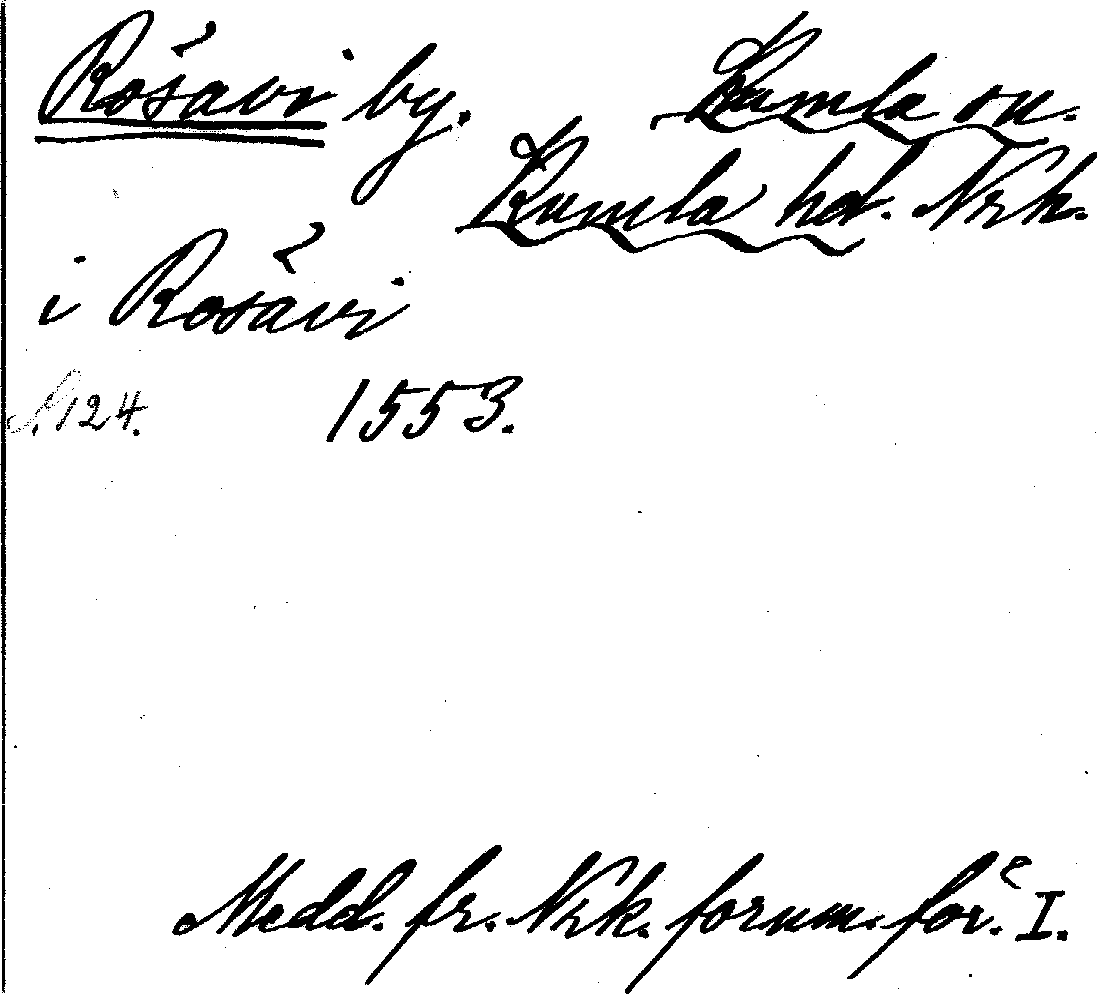 Rösavi by. Kumla sn.
Kumla hd. Nrk.
i Rösavi
S. 124. 1553.
Medd. fr. Nrk. fornm. för. I.